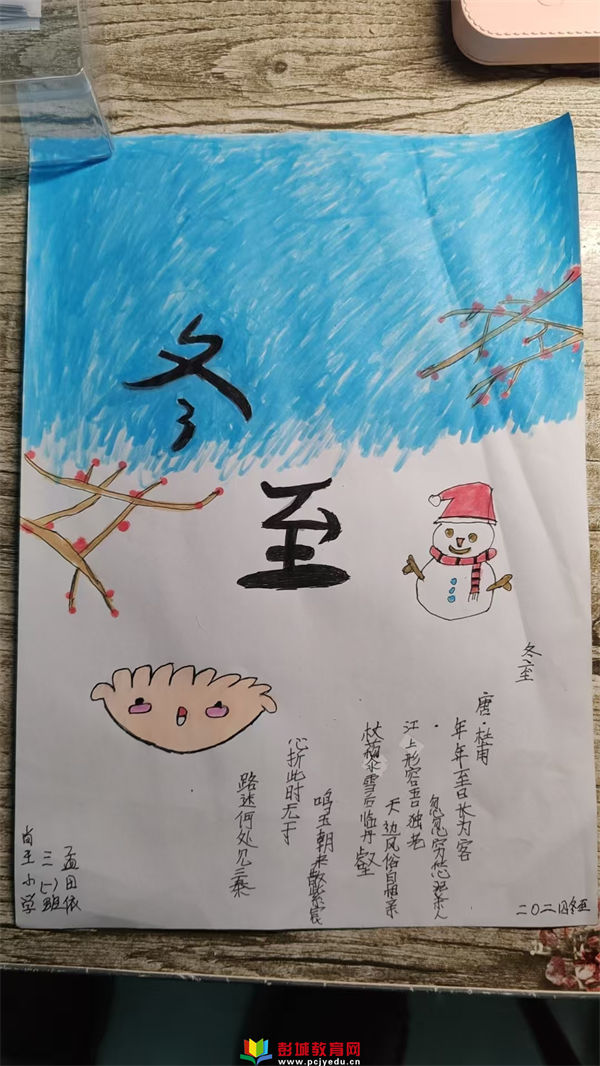 冬
至
冬至
唐·杜甫
年年至日长为客
忽忽穷愁泥杀人
江上形容吾独老
天边风俗自相亲
杖藜雪后临丹壑
鸣玉朝来散紫宸
心折此时无一寸
路迷何处见三秦
孟田依
三(一)班
肖王小学
二〇二四冬至
彭城教育网
www.pcjyedu.cn